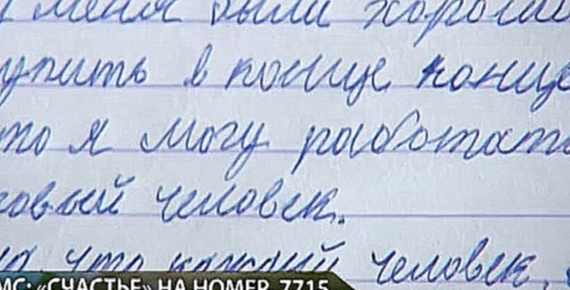 меня были хороши
упить в конце конце
то я могу работать
овый человек.
что каждый человек,
МС: «СЧАСТЬЕ» НА НОМЕР 7715